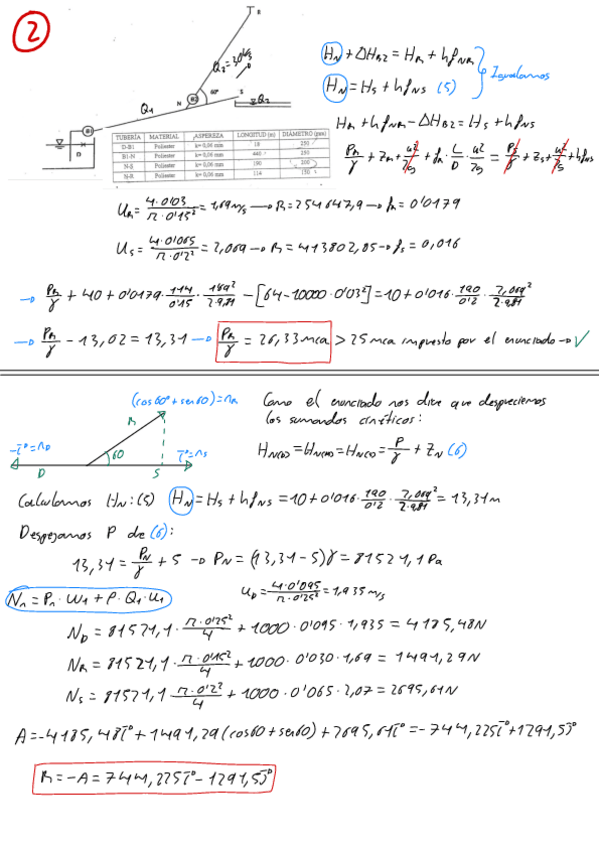 2
R
Q₂=30 l/s
60º
N B2 S
Q₁
Q₂
B1
D
TUBERÍA MATERIAL ASPEREZA LONGITUD (m) DIÁMETRO (mm)
D-B1 Poliester k= 0,06 mm 10 250
B1-N Poliester k= 0,06 mm 440 250
N-S Poliester k= 0,06 mm 190 200
N-R Poliester k= 0,06 mm 114 150
H_N + ΔH_B2 = H_R + hf_NR
H_N = H_S + hf_NS (5)
Igualamos
H_R + hf_NR - ΔH_B2 = H_S + hf_NS
P_R/γ + z_R + u²/2g + f_R · L/D · u²/2g = P_S/γ + z_S + u²/2g + hf_NS
U_R = 4·0'03/π·0'15² = 1,69 m/s → R = 254647,9 → f_R = 0'0179
U_S = 4·0'065/π·0'2² = 2,069 → R = 413802,85 → f_S = 0,016
→ P_R/γ + 40 + 0'0179 · 114/0'15 · 1'69²/2·9,81 - [64 - 10000·0'03²] = 10 + 0'016 · 190/0'2 · 2,069²/2·9,81
→ P_R/γ - 13,02 = 13,31 → P_R/γ = 26,33 mca > 25 mca impuesto por el enunciado → ✓
(cos60º + sen60) = n_R
R
-i = n_D
60
i = n_S
D S
Como el enunciado nos dice que despreciemos
los sumandos cinéticos:
H_N(D) = H_N(R) = H_N(S) = P/γ + z_N (6)
Calculamos H_N: (5) H_N = H_S + hf_NS = 10 + 0'016 · 190/0'2 · 2,069²/2·9,81 = 13,31 m
Despejamos P de (6):
13,31 = P_N/γ + 5 → P_N = (13,31 - 5)γ = 81521,1 Pa
N_n = P_n · ω_1 + ρ · Q_1 · u_1
U_D = 4·0'095/π·0'25² = 1,935 m/s
N_D = 81521,1 · π·0'25²/4 + 1000 · 0'095 · 1,935 = 4185,48 N
N_R = 81521,1 · π·0'15²/4 + 1000 · 0'030 · 1,69 = 1491,29 N
N_S = 81521,1 · π·0'2²/4 + 1000 · 0'065 · 2,07 = 2695,61 N
A = -4185,48 i + 1491,29 (cos60 + sen60) + 2695,61 i = -744,225 i + 1291,5 j
R = -A = 744,225 i - 1291,5 j